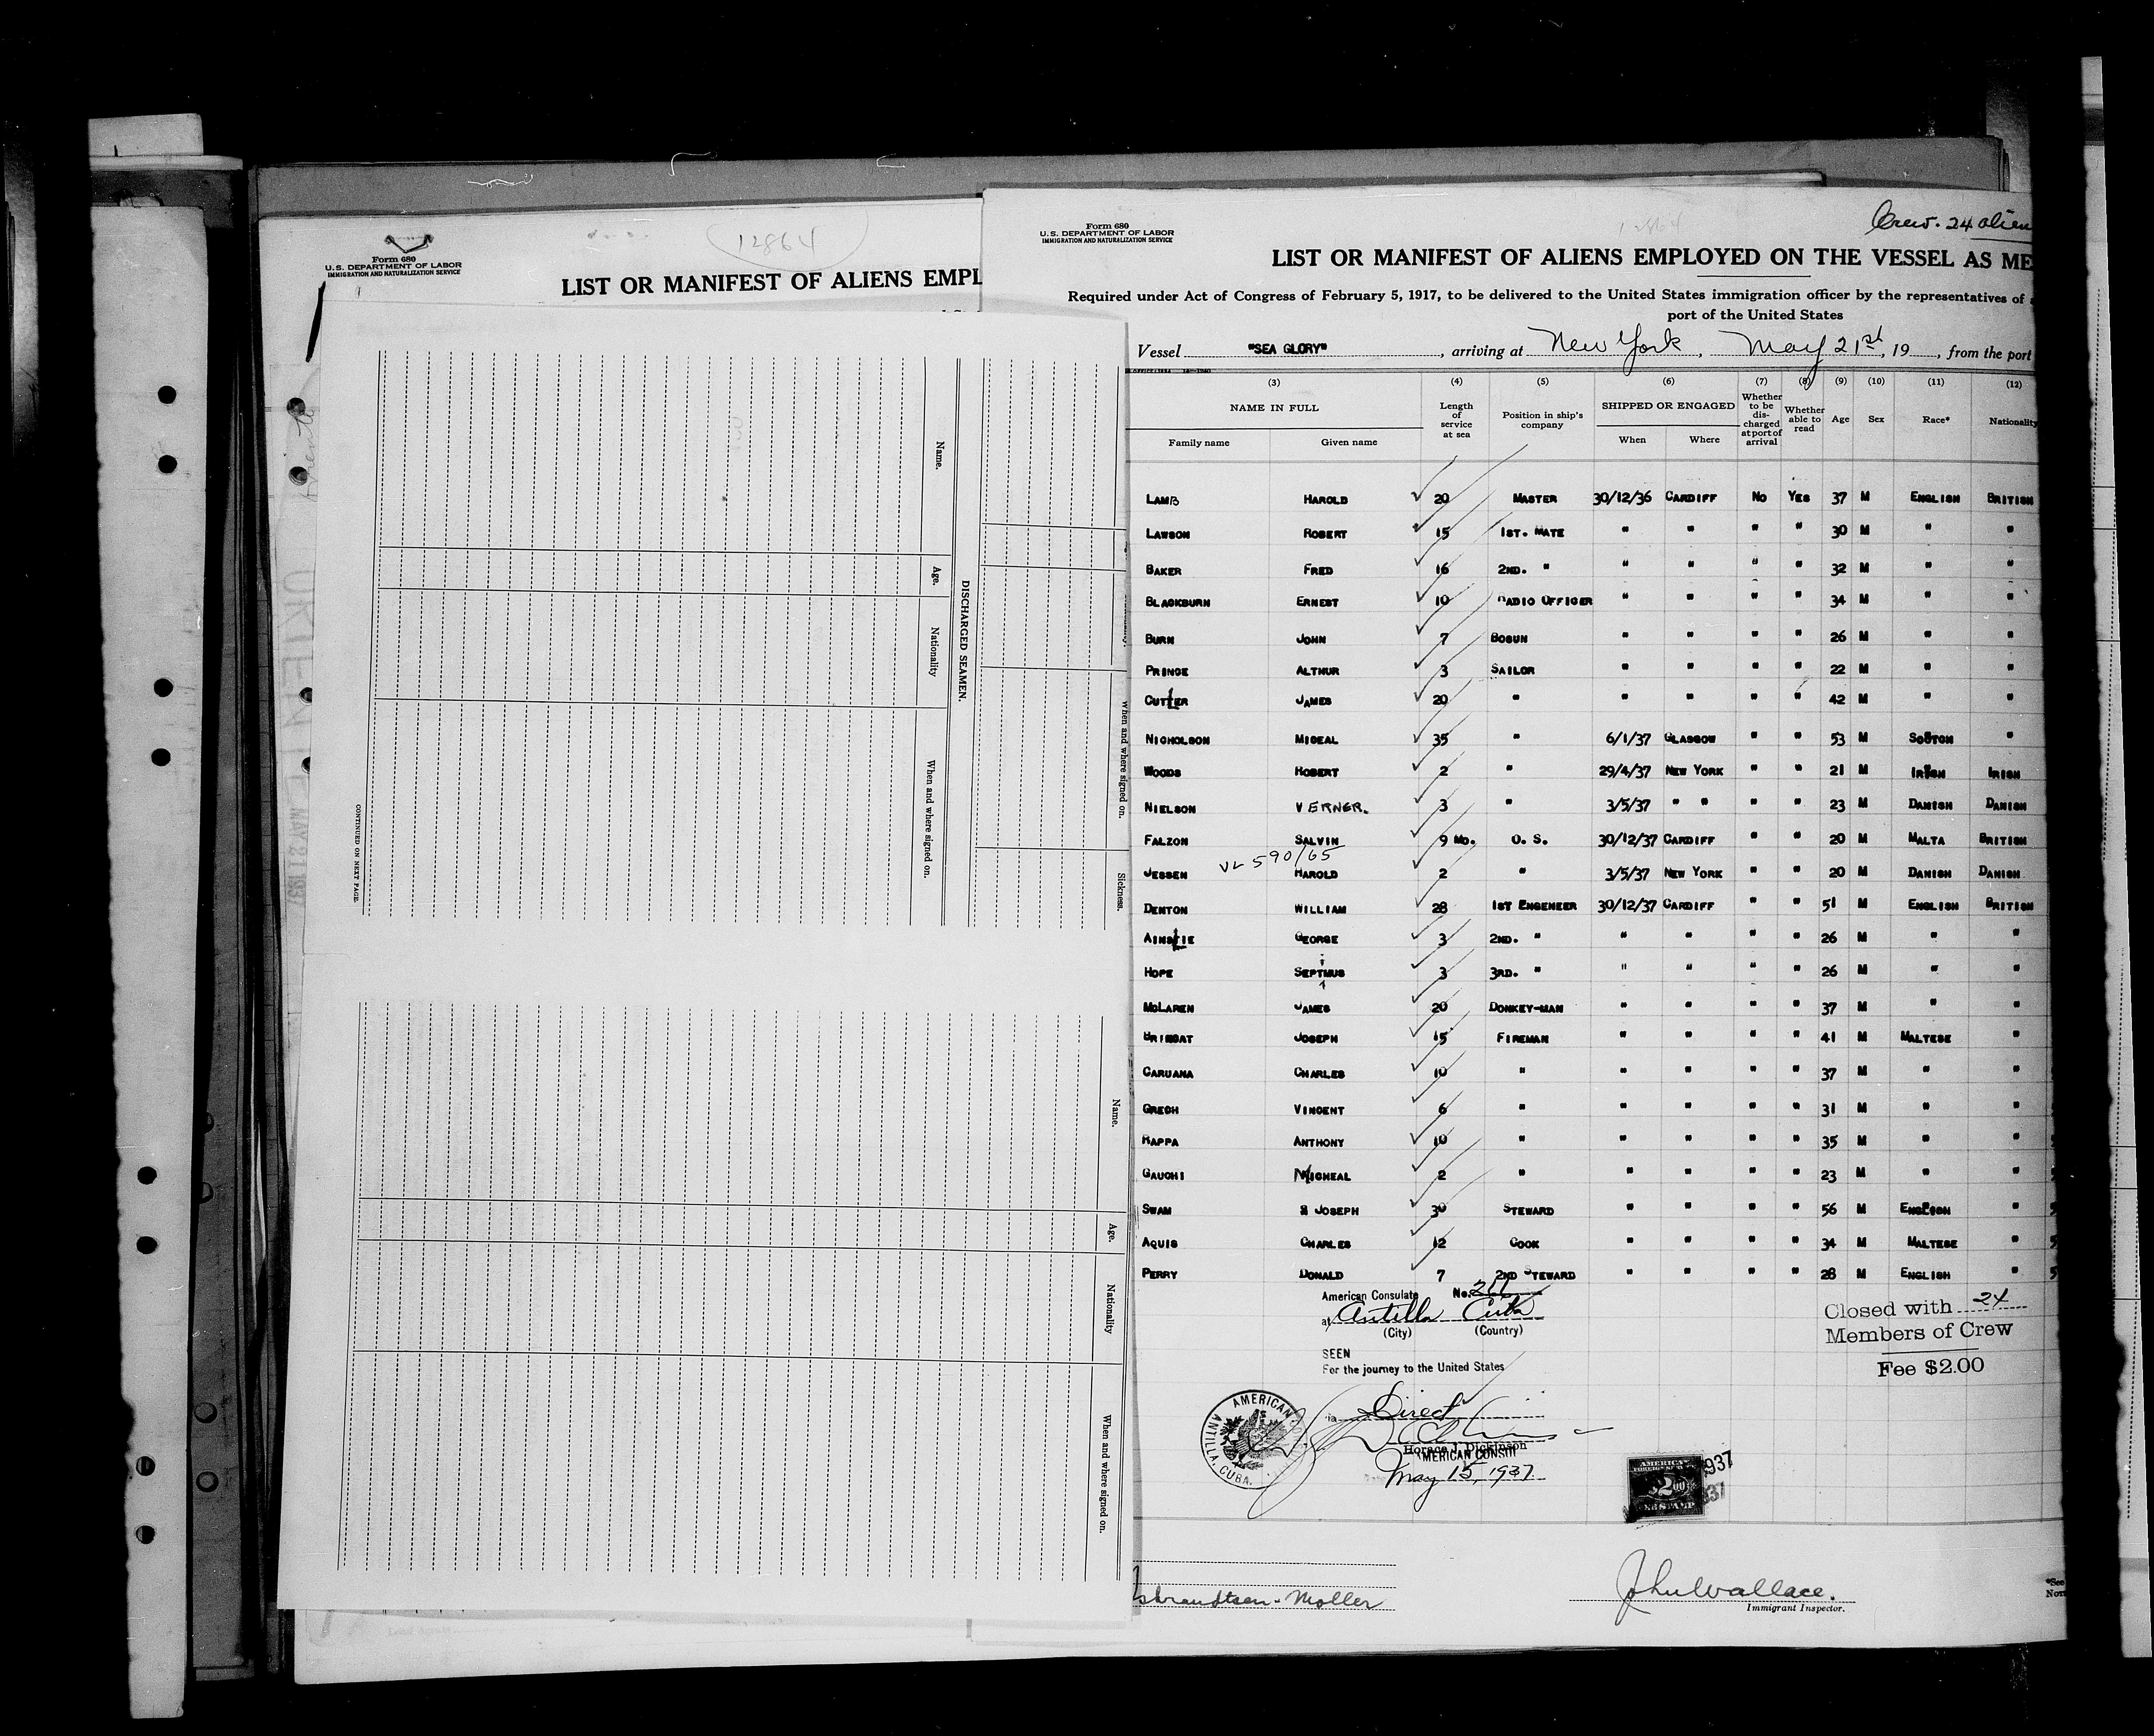 12864
Form 680
U.S. DEPARTMENT OF LABOR
IMMIGRATION AND NATURALIZATION SERVICE
LIST OR MANIFEST OF ALIENS EMPL
Name.
Age.
Nationality
When and where signed on.
DISCHARGED SEAMEN.
CONTINUED ON NEXT PAGE.
When and where signed on.
Sickness.
Name.
Age.
Nationality
When and where signed on.
MAY 21 1937
Form 680
U.S. DEPARTMENT OF LABOR
IMMIGRATION AND NATURALIZATION SERVICE
12864
Crew. 24 alien
LIST OR MANIFEST OF ALIENS EMPLOYED ON THE VESSEL AS ME
Required under Act of Congress of February 5, 1917, to be delivered to the United States immigration officer by the representatives of
port of the United States
Vessel "SEA GLORY", arriving at New York, May 21st, 19 , from the port
(3) (4) (5) (6) (7) (8) (9) (10) (11) (12)
NAME IN FULL Family name Given name Length of service at sea Position in ship's company SHIPPED OR ENGAGED When Where Whether to be discharged at port of arrival Whether able to read Age Sex Race* Nationality
LAMB HAROLD 20 MASTER 30/12/36 CARDIFF NO YES 37 M ENGLISH BRITISH
LAWSON ROBERT 15 1ST. MATE " " " " 30 M " "
BAKER FRED 16 2ND. " " " " " 32 M " "
BLACKBURN ERNEST 10 RADIO OFFICER " " " " 34 M " "
BURN JOHN 7 BOSUN " " " " 26 M " "
PRINCE ALTHUR 3 SAILOR " " " " 22 M " "
CUTTER JAMES 20 " " " " " 42 M " "
NICHOLSON MICEAL 35 " 6/1/37 GLASGOW " " 53 M SCOTCH "
WOODS ROBERT 2 " 29/4/37 NEW YORK " " 21 M IRISH IRISH
NIELSON VERNER. 3 " 3/5/37 " " " " 23 M DANISH DANISH
FALZON SALVIN 9 MO. O. S. 30/12/37 CARDIFF " " 20 M MALTA BRITISH
VL 590/65
JESSEN HAROLD 2 " 3/5/37 NEW YORK " " 20 M DANISH DANISH
DENTON WILLIAM 28 1ST ENGENEER 30/12/37 CARDIFF " " 51 M ENGLISH BRITISH
GEORGE 3 2ND. " " " " " 26 M " "
HOPE SEPTIMUS 3 3RD. " " " " " 26 M " "
MCLAREN JAMES 20 DONKEY-MAN " " " " 37 M " "
JOSEPH 15 FIREMAN " " " " 41 M MALTESE "
CARUANA CHARLES 10 " " " " " 37 M " "
GRECH VINCENT 6 " " " " " 31 M " "
KAPPA ANTHONY 10 " " " " " 35 M " "
GAUCHI MICHEAL 2 " " " " " 23 M " "
SWAM JOSEPH 30 STEWARD " " " " 56 M ENGLISH "
AQUIS CHARLES 12 COOK " " " " 34 M MALTESE "
PERRY DONALD 7 2ND STEWARD " " " " 28 M ENGLISH "
American Consulate No. 261
at Antilla Cuba
(City) (Country)
SEEN
For the journey to the United States
Direct
Horace J. Dickinson
AMERICAN CONSUL
May 15, 1937
AMERICAN
ANTILLA, CUBA.
Closed with 24
Members of Crew
Fee $2.00
AMERICAN
$2.00
FEE STAMP
1937
Isbrandtsen-Moller
John Wallace.
Immigrant Inspector.
*See